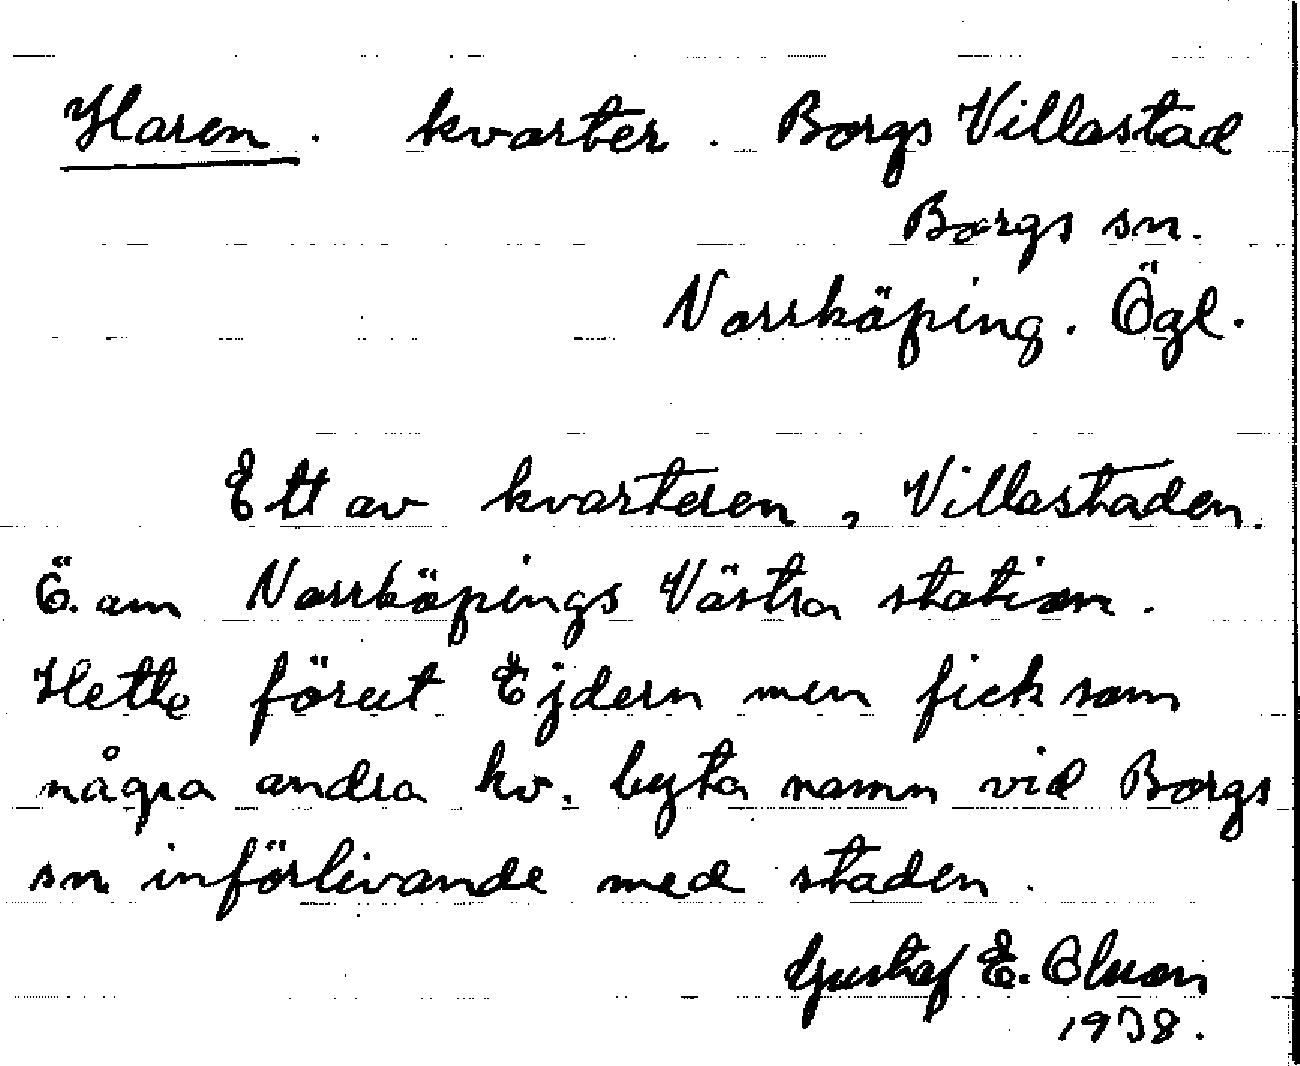 Haren. kvarter. Borgs Villastad
Borgs sn.
Norrköping. Ögl.
Ett av kvarteren, Villastaden.
Ö. om Norrköpings Västra station.
Hette förut Ejdern men fick som
några andra kv. byta namn vid Borgs
sn införlivande med staden.
Gustaf E. Olson
1938.